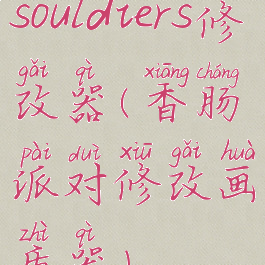 souldiers修
gǎi qì xiāng cháng
改器(香肠
pài duì xiū gǎi huà
派对修改画
zhì qì
质器)